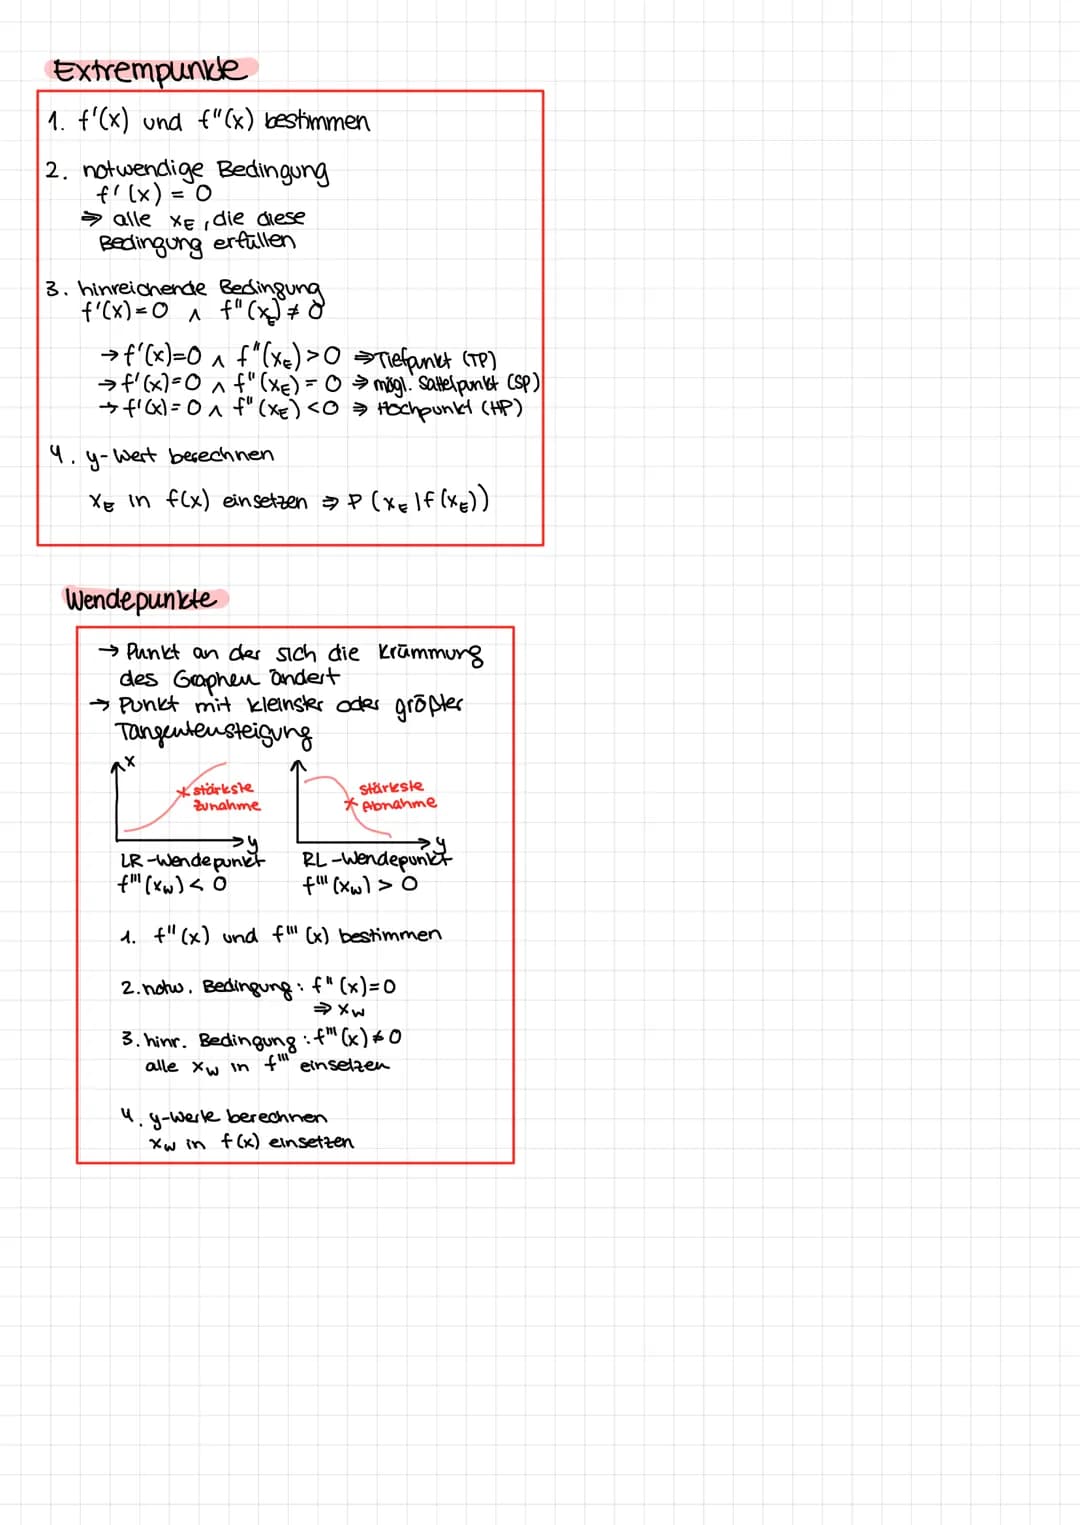 Extrempunkte
1. f'(x) und f"(x) bestimmen
2. notwendige Bedingung
f'(x) = 0
⇒ alle x_E, die diese
Bedingung erfüllen
3. hinreichende Bedingung
f'(x)=0 ∧ f"(x_E) ≠ 0
→ f'(x)=0 ∧ f"(x_E) > 0 ⇒ Tiefpunkt (TP)
→ f'(x)=0 ∧ f"(x_E) = 0 ⇒ mögl. Sattelpunkt (SP)
→ f'(x)=0 ∧ f"(x_E) < 0 ⇒ Hochpunkt (HP)
4. y-Wert berechnen
x_E in f(x) einsetzen ⇒ P (x_E | f(x_E))
Wendepunkte
→ Punkt an der sich die Krümmung
des Graphen ändert
→ Punkt mit kleinster oder größter
Tangentensteigung
x
stärkste
Zunahme
stärkste
Abnahme
y
y
LR-Wendepunkt
f'''(x_W) < 0
RL-Wendepunkt
f'''(x_W) > 0
1. f"(x) und f'''(x) bestimmen
2. notw. Bedingung: f"(x)=0
⇒ x_W
3. hinr. Bedingung: f'''(x) ≠ 0
alle x_W in f''' einsetzen
4. y-Werte berechnen
x_W in f(x) einsetzen